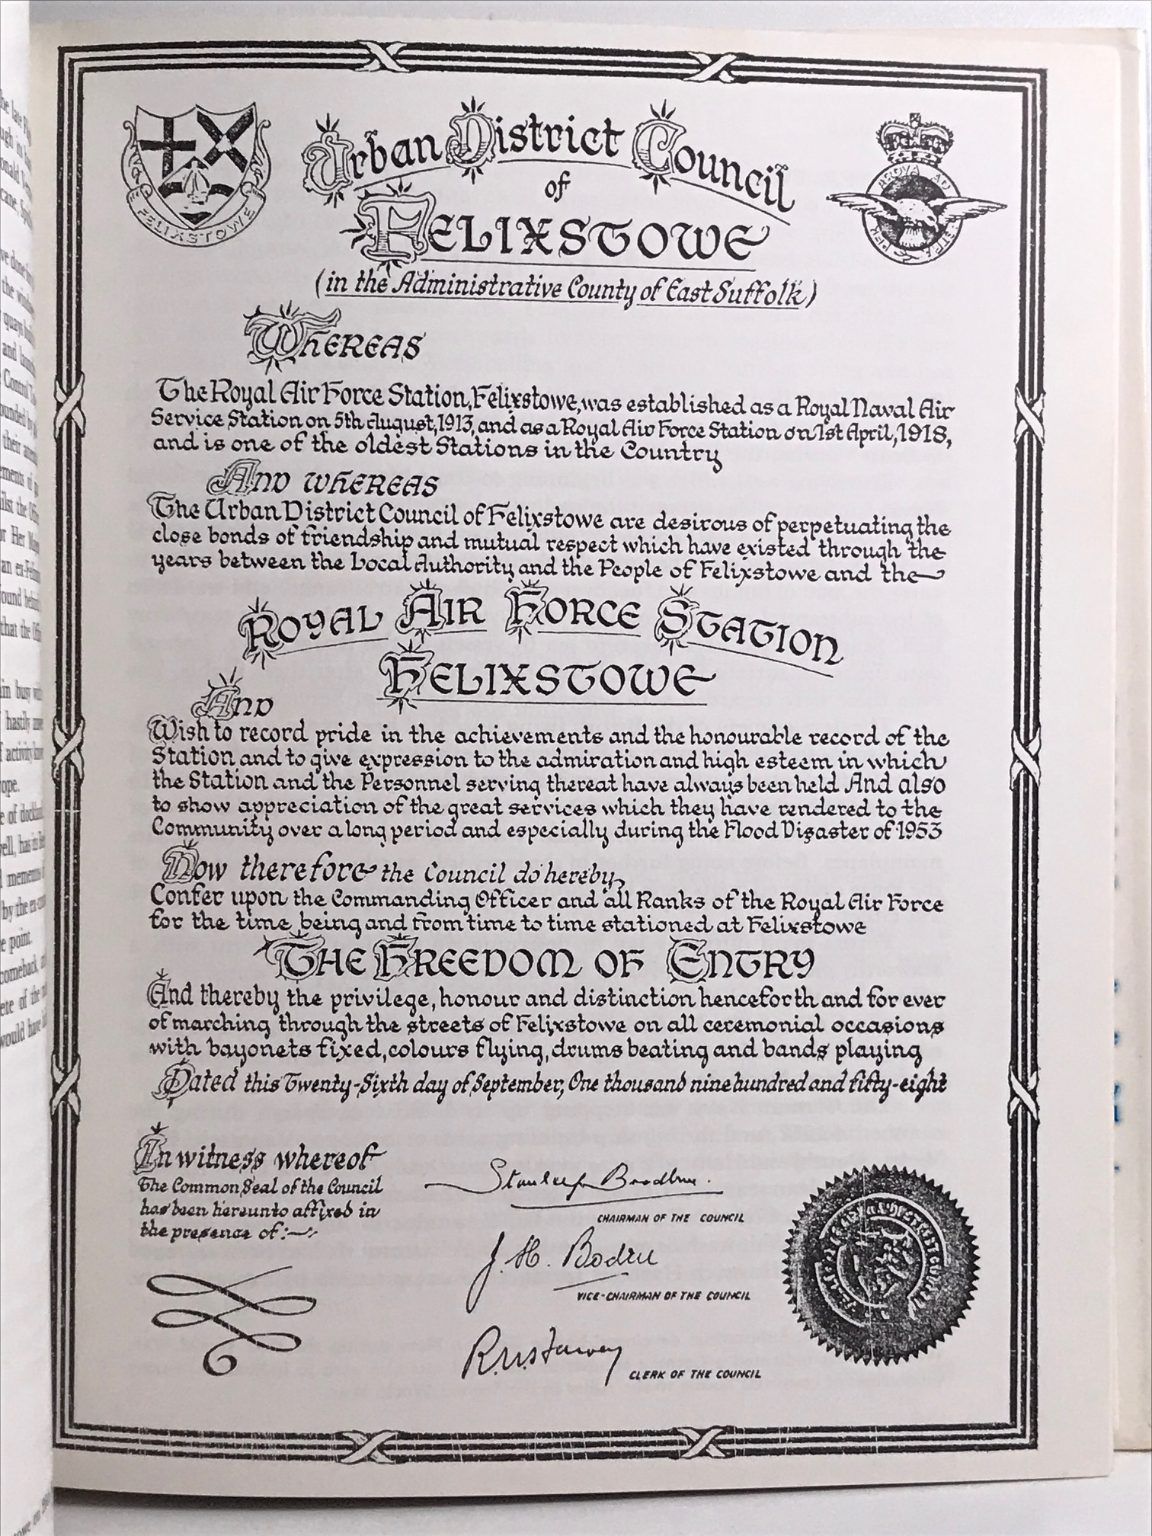 Urban District Council
of
FELIXSTOWE
(in the Administrative County of East Suffolk)
FELIXSTOWE
PER ARDVA AD ASTRA
WHEREAS
The Royal Air Force Station, Felixstowe, was established as a Royal Naval Air
Service Station on 5th August, 1913, and as a Royal Air Force Station on 1st April, 1918,
and is one of the oldest Stations in the Country
AND WHEREAS
The Urban District Council of Felixstowe are desirous of perpetuating the
close bonds of friendship and mutual respect which have existed through the
years between the Local Authority and the People of Felixstowe and the
ROYAL AIR FORCE STATION
FELIXSTOWE
AND
Wish to record pride in the achievements and the honourable record of the
Station and to give expression to the admiration and high esteem in which
the Station and the Personnel serving thereat have always been held And also
to show appreciation of the great services which they have rendered to the
Community over a long period and especially during the Flood Disaster of 1953
Now therefore the Council do hereby
Confer upon the Commanding Officer and all Ranks of the Royal Air Force
for the time being and from time to time stationed at Felixstowe
THE FREEDOM OF ENTRY
And thereby the privilege, honour and distinction henceforth and for ever
of marching through the streets of Felixstowe on all ceremonial occasions
with bayonets fixed, colours flying, drums beating and bands playing
Dated this Twenty-Sixth day of September, One thousand nine hundred and fifty-eight
In witness whereof
The Common Seal of the Council
has been hereunto affixed in
the presence of:-
Stanley
CHAIRMAN OF THE COUNCIL
J. H.
VICE-CHAIRMAN OF THE COUNCIL
CLERK OF THE COUNCIL